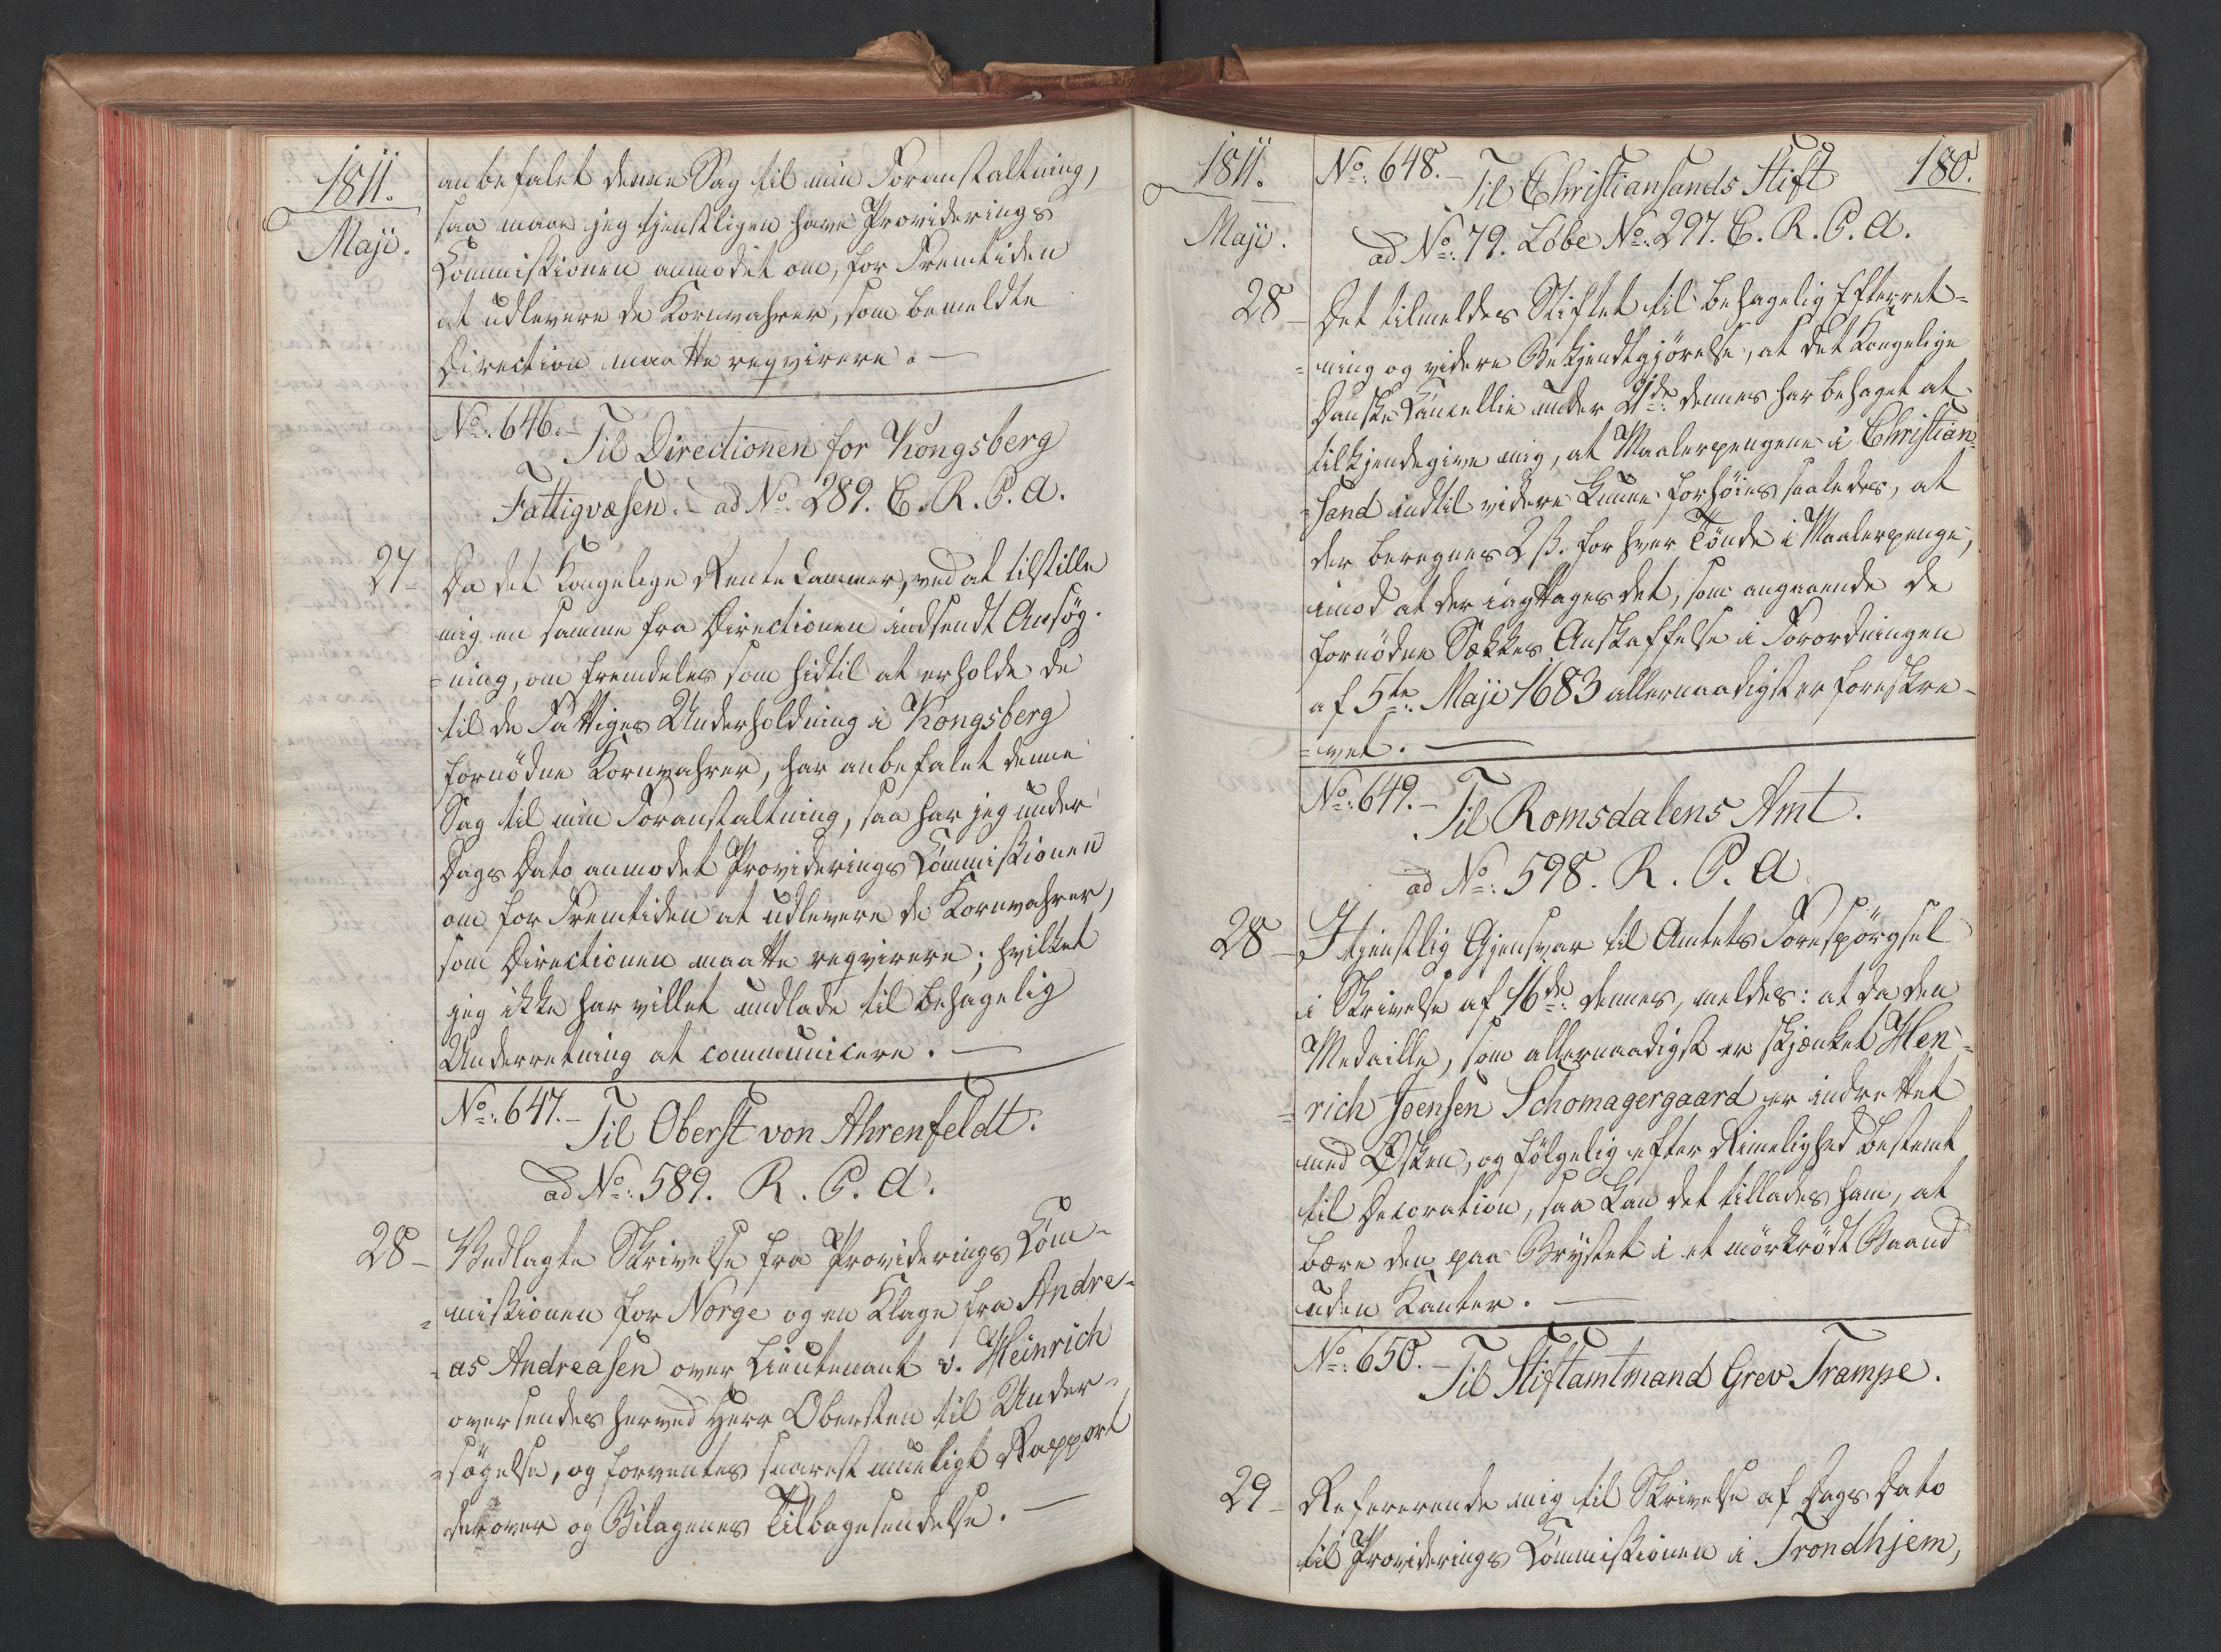 1811.
Maji.
anbefalet denne Sag til min Foranstaltning,
saa maae jeg tjenstligen have Providerings
Commissionen anmodet om, for Fremtiden
at udlevere de Kornvahrer, som bemeldte
Direction maatte reqvirere. —
No. 646. – Til Directionen for Kongsberg
Fattigvæsen. – ad No. 289. C. R. P. A.
27 – Da det Kongelige Rentekammer, ved at tilstille
mig en samme fra Directionen indsendt Ansög-
=ning, om fremdeles som hidtil at erholde de
til de Fattiges Underholdning i Kongsberg
fornödne Kornvahrer, har anbefalet denne
Sag til min Foranstaltning, saa har jeg under
Dags Dato anmodet Providerings Commissionen
om for Fremtiden at udlevere de Kornvahrer,
som Directionen maatte reqvirere; hvilket
jeg ikke har villet undlade til behagelig
Underretning at communicere. —
No. 647. – Til Oberst von Ahrenfeldt.
ad No. 589. R. P. A.
28 – Vedlagte Skrivelse fra Providerings Com-
=missionen for Norge og en Klage fra Andre-
=as Andreasen over Lieutenant v. Heinrich
oversendes herved Herr Obersten til Under-
=sögelse, og forventes snarest mueligt Rapport
derover og Bilagenes Tilbagesendelse. —
1811.
Maji.
180.
No. 648. – Til Christiansands Stift
ad No. 79. Löbe No. 297. C. R. P. A.
28 – Det tilmeldes Stiftet til behagelig Efterret-
=ning og videre Bekjendtgjörelse, at det Kongelige
Danske Cancellie under 21de dennes har behaget at
tilkjendegive mig, at Maalerpengene i Christian-
=sand indtil videre kunne forhöies saaledes, at
der beregnes 2 ß. for hver Tönde i Maalerpenge,
imod at der iagttages det, som angaaende de
fornödne Sækkes Anskaffelse i Forordningen
af 5te Maji 1683 allernaadigst er foreskre-
=vet. —
No. 649. – Til Romsdalens Amt.
ad No. 598. R. P. A.
28 – I tjenstlig Gjensvar til Amtets Forespörgsel
i Skrivelse af 16de dennes, meldes: at da den
Medaille, som allernaadigst er skjænket Hen-
=rich Joensen Schomagergaard er indrettet
med Øsken, og fölgelig efter Rimelighed bestemt
til Decoration, saa kan det tillades ham, at
bære den paa Brystet i et mörkrödt Baand
uden Kanter. —
No. 650. – Til Stiftamtmand Grev Trampe.
29 – Refererende mig til Skrivelse af Dags Dato
til Providerings Commissionen i Trondhjem,